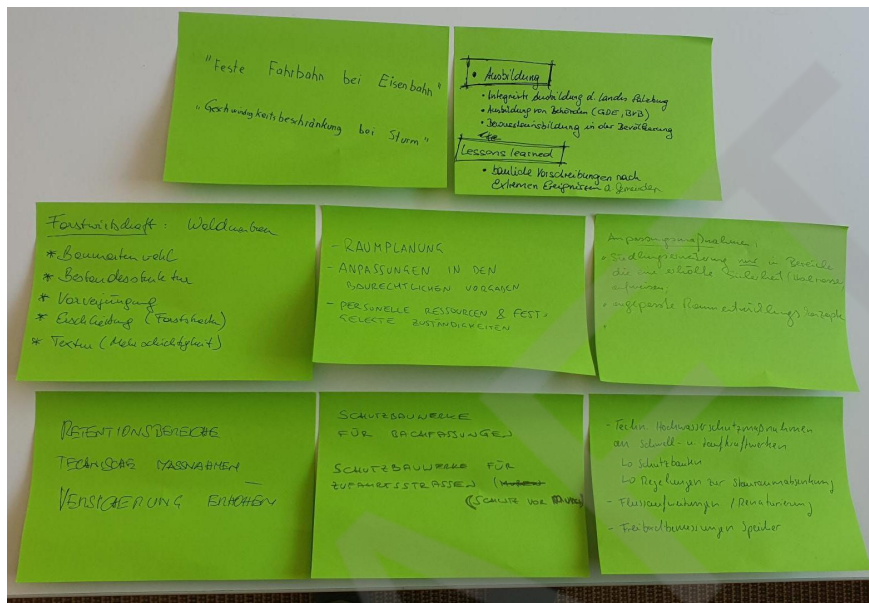 "Feste Fahrbahn bei Eisenbahn"
"Geschwindigkeitsbeschränkung bei Sturm"
• Ausbildung
• Integrierte Ausbildung d. Landes Salzburg
• Ausbildung von Behörden (GDE, BVB)
• Bewusstseinsbildung in der Bevölkerung
Lessons learned
• bauliche Vorschreibungen nach
Extremen Ereignissen d. Gemeinden
Forstwirtschaft: Waldumbau
* Baumartenwahl
* Bestandesstruktur
* Vorverjüngung
* (Forststraßen)
* Textur (Mehrschichtigkeit)
- RAUMPLANUNG
- ANPASSUNGEN IN DEN
BAURECHTLICHEN VORGABEN
- PERSONELLE RESSOURCEN & FEST-
GELEGTE ZUSTÄNDIGKEITEN
Anpassungsmaßnahme:
• Siedlungserweiterung nur in Bereiche
die eine erhöhte Sicherheit
aufweisen;
• angepasste Raumentwicklungskonzepte
•
RETENTIONSBEREICHE
TECHNISCHE MASSNAHMEN
VERSICHERUNG ERHÖHEN
SCHUTZBAUWERKE
FÜR BACHFASSUNGEN
SCHUTZBAUWERKE FÜR
ZUFAHRTSSTRASSEN
(SCHUTZ VOR MUREN)
- Techn. Hochwasserschutzmaßnahmen
an Schwell- u. Laufkraftwerken
↳ Schutzbauten
↳ Regelungen zur Stauraumabsenkung
- Flussaufweitungen / Renaturierung
- Freibordbemessungen Speicher